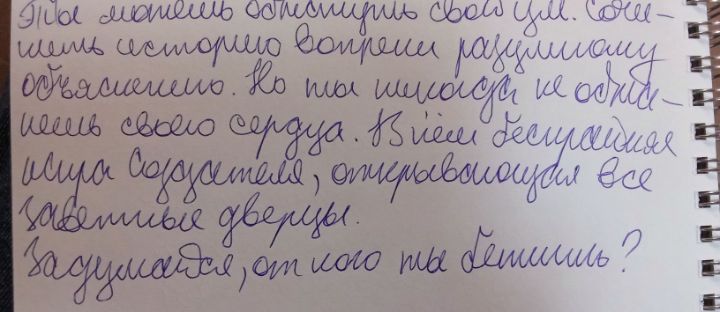 Ты можешь обхитрить свой ум. Сочи-
нить историю вопреки разумному
объяснению. Но ты никогда не обма-
нешь своего сердца. В нём бескрайняя
искра Создателя, открывающая все
заветные дверцы.
Задумайся, от кого ты бежишь?